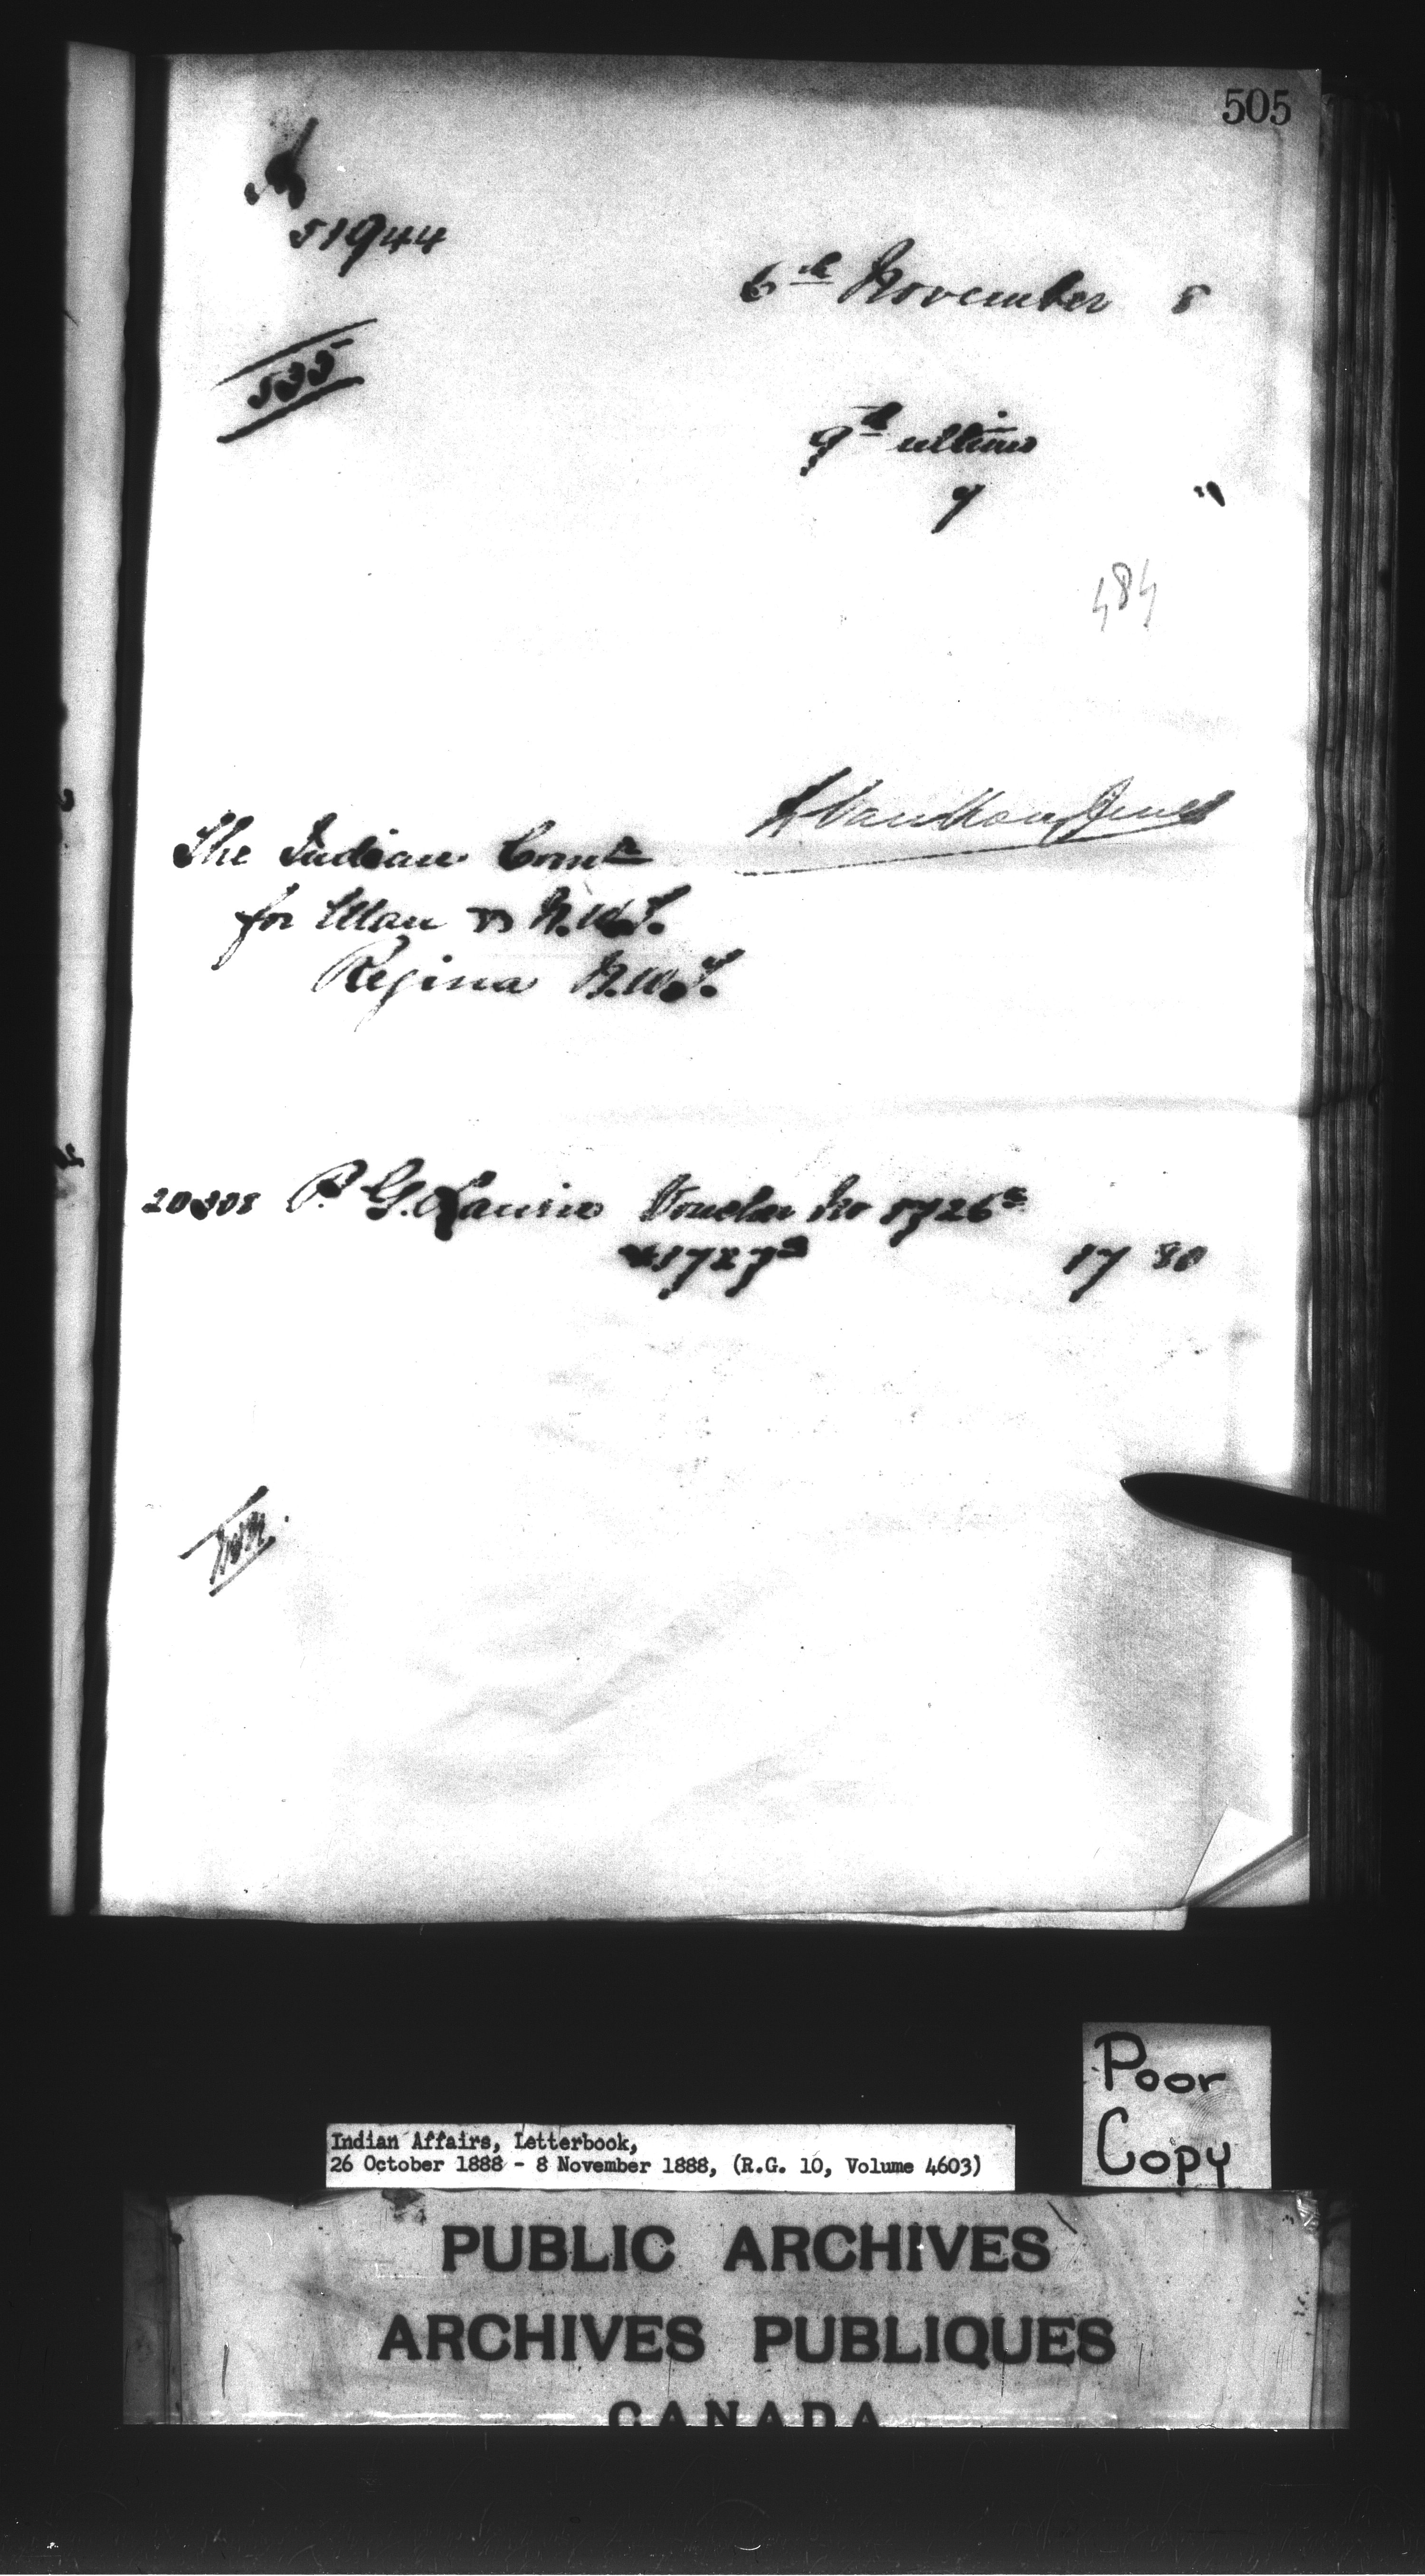 505
51944
6th November 8
535
9th ultimo
7 "
484
The Indian Comr
for Man & N.W.T.
Regina N.W.T.
20308 P. G. Laurie Voucher No 1726a
& 1727a 17 80
Poor
Copy
Indian Affairs, Letterbook,
26 October 1888 - 8 November 1888, (R.G. 10, Volume 4603)
PUBLIC ARCHIVES
ARCHIVES PUBLIQUES
CANADA